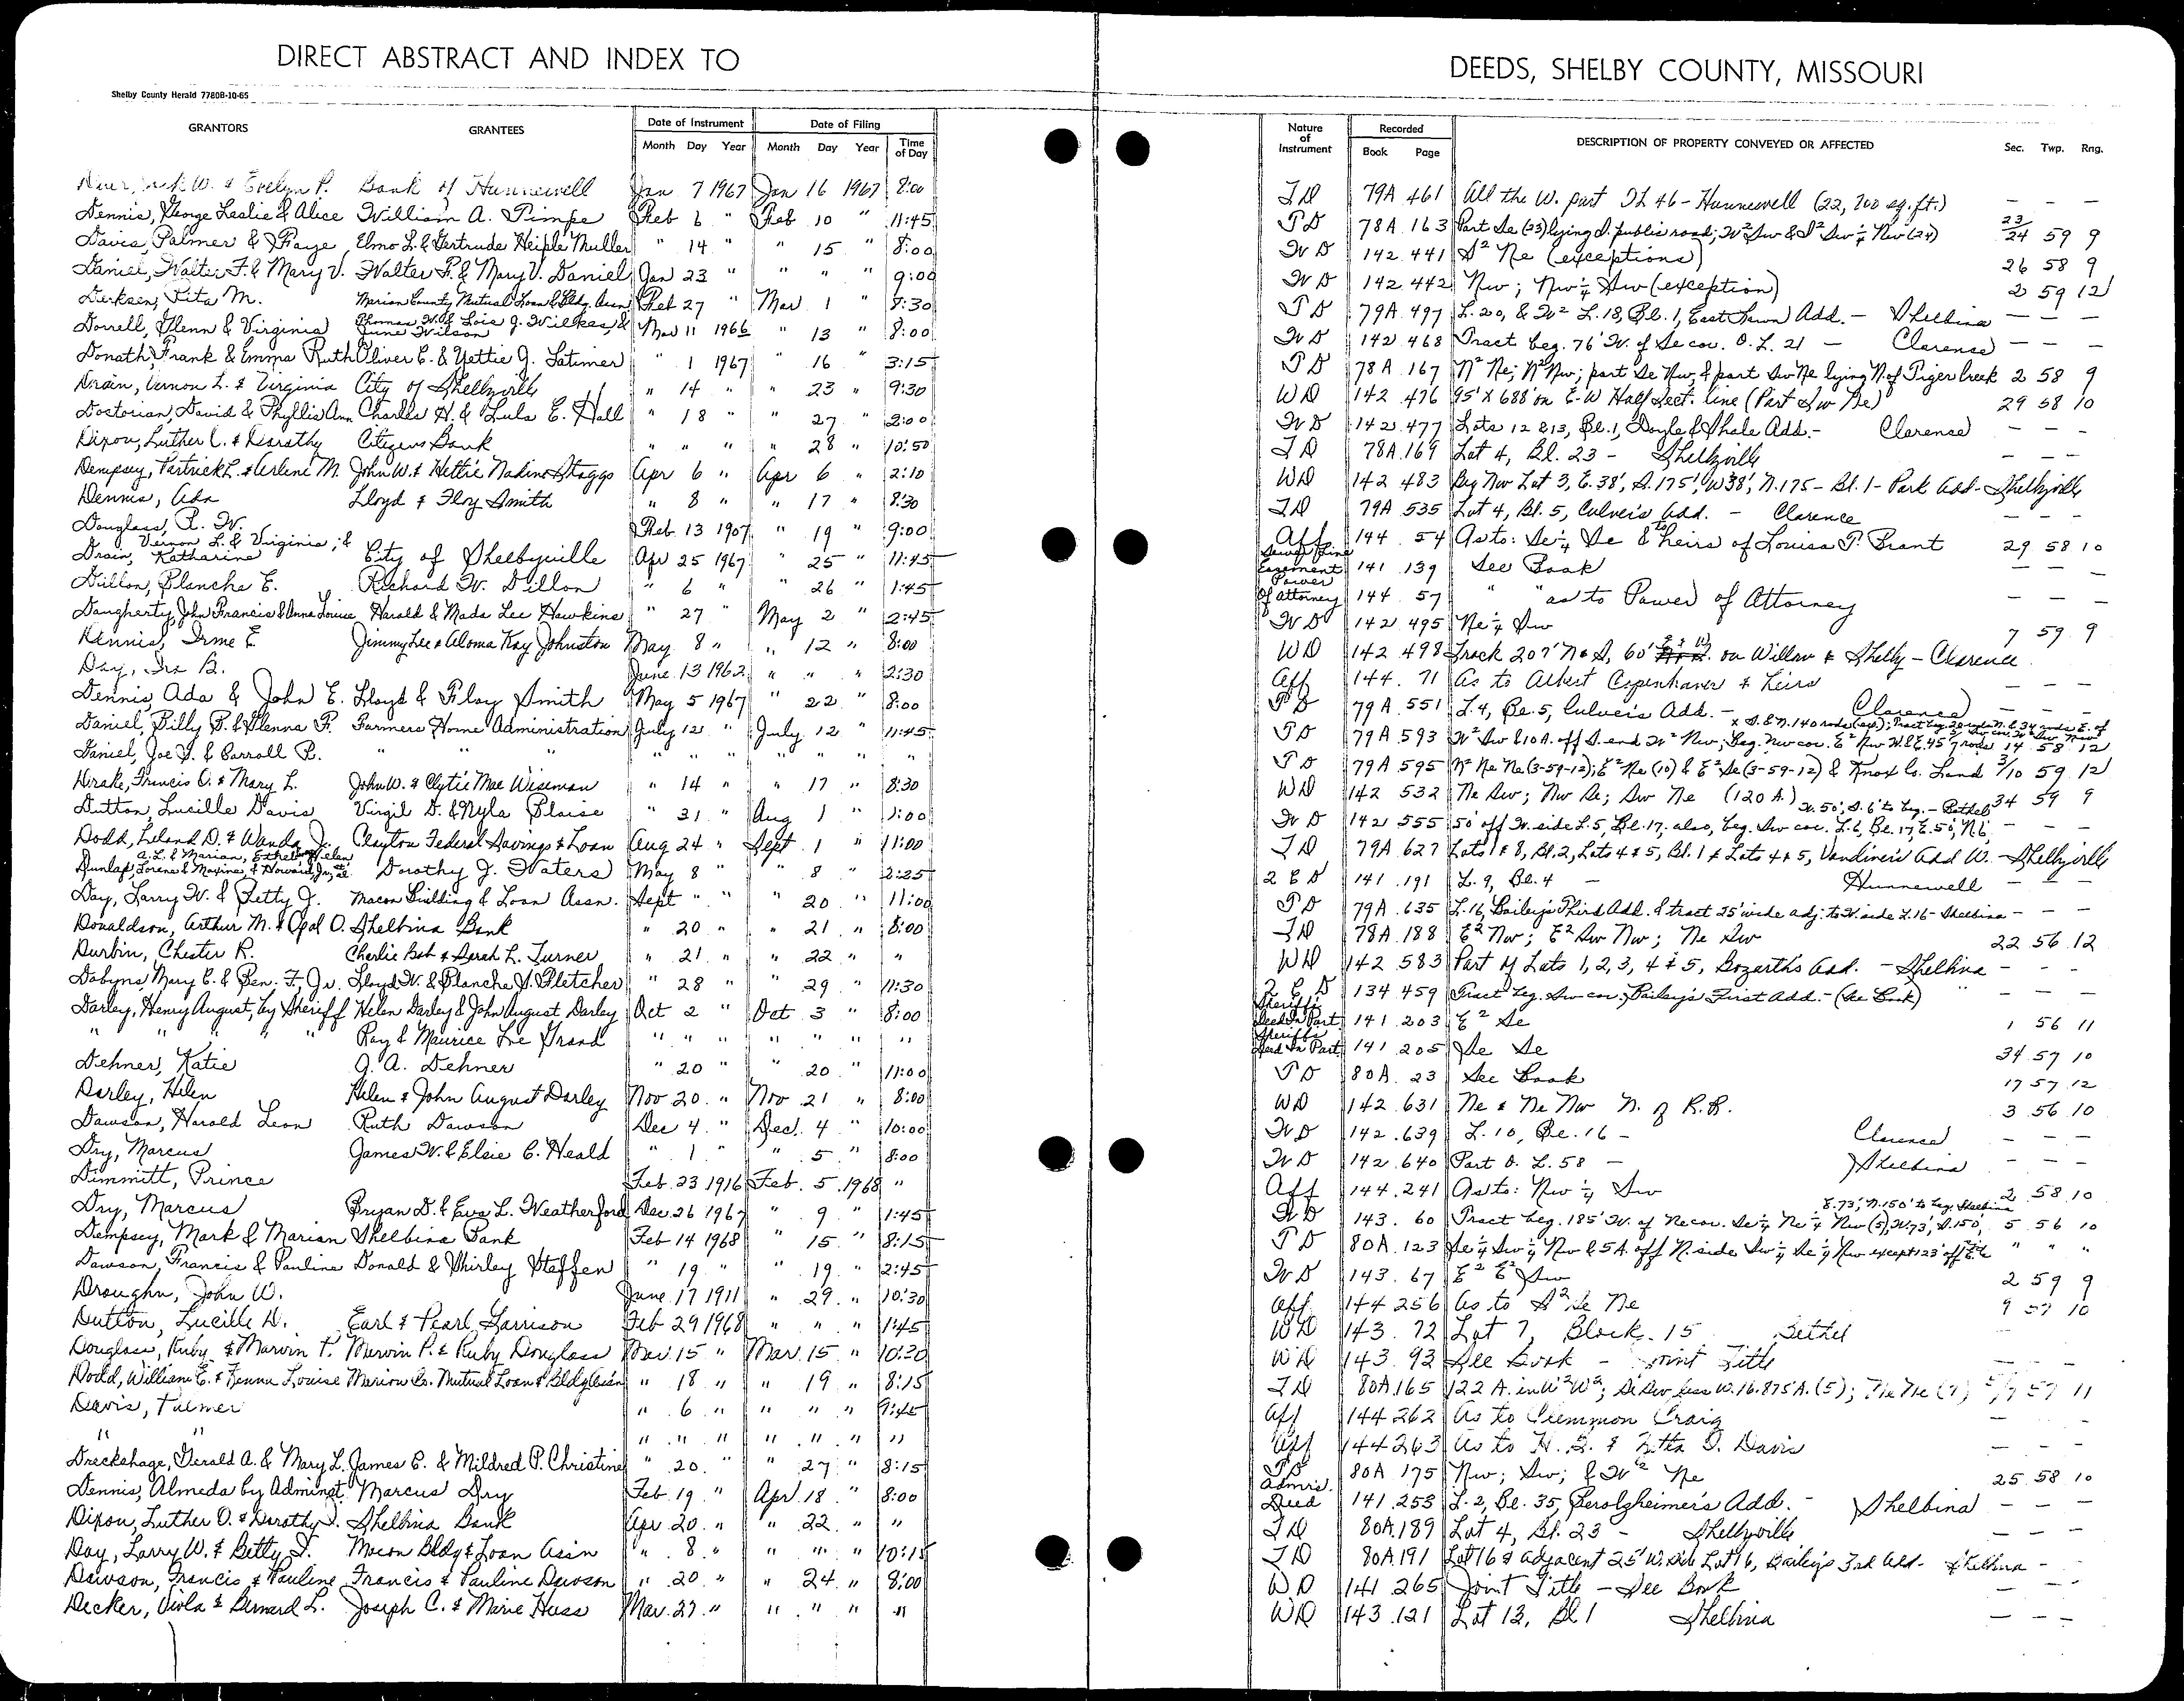 DIRECT ABSTRACT AND INDEX TO
DEEDS, SHELBY COUNTY, MISSOURI
Shelby County Herald 7780B-10-65
GRANTORS GRANTEES Date of Instrument Month Day Year Date of Filing Month Day Year Time of Day
Nature of Instrument Recorded Book Page DESCRIPTION OF PROPERTY CONVEYED OR AFFECTED Sec. Twp. Rng.
W. & Evelyn P. Bank of Hunnewell Jan 7 1967 Jan 16 1967 8:00 TD 79A 461 All the W. part OL 46 - Hunnewell (22,200 sq. ft.) — — —
Dennis, George Leslie & Alice William A. Pimpe Feb 6 " Feb 10 " 11:45 TD 78A 163 Part Se (23) lying S. public road; W² Sw & S² Sw ¼ Nw (24) 23/24 59 9
Davis, Palmer & Faye Elmo L. & Gertrude Heiple Muller " 14 " " 15 " 8:00 WD 142 441 S² Ne (exceptions) 26 58 9
Daniel, Walter F. & Mary V. Walter F. & Mary V. Daniel Jan 23 " " " " 9:00 WD 142 442 Nw; Nw ¼ Sw (exception) 2 59 12
Derksen, Rita M. Marion County Mutual Loan & Bldg. Assn Feb 27 " Mar 1 " 8:30 TD 79A 497 L. 20, & W² L. 18, Bl. 1, East Lawn Add. - Shelbina — — —
Dorrell, Glenn & Virginia Thomas W. & Lois J. Wilkes, & June Wilson Mar 11 1966 " 13 " 8:00 WD 142 468 Tract beg. 76' W. of Se cor. O.L. 21 — Clarence — — —
Donath, Frank & Emma Ruth Oliver C. & Nettie J. Latimer " 1 1967 " 16 " 3:15 TD 78A 167 N² Ne; N² Nw; part Se Nw, & part Sw Ne lying N. of Tiger Creek 2 58 9
Drain, Vernon L. & Virginia City of Shelbyville " 14 " " 23 " 9:30 WD 142 476 95' X 688' on E-W Half Sect. line (Part Sw Ne) 29 58 10
Dostorian, David & Phyllis Ann Charles H. & Lula E. Hall " 18 " " 27 " 2:00 WD 142 477 Lots 12 & 13, Bl. 1, Doyle & Shale Add. - Clarence — — —
Dixon, Luther O. & Dorothy Citizens Bank " " " " 28 " 10:50 TD 78A 169 Lot 4, Bl. 23 - Shelbyville — — —
Dempsey, Patrick L. & Arlene M. John W. & Hettie Nadine Staggs Apr 6 " Apr 6 " 2:10 WD 142 483 Beg Nw Lot 3, E. 38', S. 175', W 38', N. 175 - Bl. 1 - Park Add - Shelbyville
Dennis, Ada Lloyd & Floy Smith " 8 " " 17 " 8:30 TD 79A 535 Lot 4, Bl. 5, Culver's Add. - Clarence — — —
Douglass, R. W. Feb 13 1907 " 19 " 9:00 Aff 144 54 As to: Se ¼ Se & to heirs of Louisa P. Grant 29 58 10
Drain, Vernon L. & Virginia, & Katharine City of Shelbyville Apr 25 1967 " 25 " 11:45 Sewer Line Easement 141 139 See Book — — —
Dillon, Blanche E. Richard W. Dillon " 6 " " 26 " 1:45 Power Of Attorney 144 57 " " as to Power of Attorney — — —
Daugherty, John Francis & Anna Louise Harold & Mada Lee Hawkins " 27 " May 2 " 2:45 WD 142 495 Ne ¼ Sw 7 59 9
Dennis, Irme E. Jimmy Lee & Aloma Kay Johnston May 8 " " 12 " 8:00 WD 142 498 Track 207' N & S, 60' E & W. on Willow & Shelby - Clarence
Day, Ira B. June 13 1962 " " " 2:30 Aff 144 71 As to Albert Espenhaver & heirs — — —
Dennis, Ada & John E. Lloyd & Floy Smith May 5 1967 " 22 " 8:00 TD 79A 551 L. 4, Bl. 5, Culver's Add. - Clarence
Daniel, Billy B. & Glenna F. Farmers Home Administration July 12 " July 12 " 11:45 TD 79A 593 W² Sw & 10 A. off S. end W² Nw; Beg. Nw cor. E² Nw 14 58 12
Daniel, Joe J. & Carroll R. " " " " " " " " " " TD 79A 595 N² Ne Ne (3-59-12); E² Ne (10) & E² Se (3-59-12) & Knox Co. Land 3/10 59 12
Drake, Francis O. & Mary L. John W. & Clytie Mae Wiseman " 14 " " 17 " 8:30 WD 142 532 Ne Sw; Nw Se; Sw Ne (120 A.) 34 59 9
Dutton, Lucille Davis Virgil D. & Nyla Blaise " 31 " Aug 1 " 1:00 WD 142 555 50' off W. side L. 5, Bl. 17. also, beg. Sw cor. L. 6, Bl. 17, E. 50', N 6', W. 50', S. 6' to beg. - Bethel — — —
Dodd, Leland D. & Wanda J. Clayton Federal Savings & Loan Aug 24 " Sept 1 " 11:00 TD 79A 627 Lots 1 & 8, Bl. 2, Lots 4 & 5, Bl. 1 & Lots 4 & 5, Vandiver's Add W. - Shelbyville
Dunlap, A.L. & Marian, Lorene & Maxine, & Howard Jr, et al Dorothy J. Waters May 8 " " 8 " 2:25 2 E D 141 191 L. 9, Bl. 4 — Hunnewell — — —
Day, Larry W. & Betty J. Macon Building & Loan Assn. Sept " " " 20 " 11:00 TD 79A 635 L. 16, Bailey's Third Add. & tract 25' wide adj. to W. side L. 16 - Shelbina — — —
Donaldson, Arthur M. & Opal O. Shelbina Bank " 20 " " 21 " 8:00 TD 78A 188 E² Nw; E² Sw Nw; Ne Sw 22 56 12
Durbin, Chester R. Charlie Bob & Sarah L. Turner " 21 " " 22 " " WD 142 583 Part of Lots 1, 2, 3, 4 & 5, Bozarths Add. - Shelbina — — —
Dobyns, Mary C. & Ben. F., Jr. Lloyd W. & Blanche V. Fletcher " 28 " " 29 " 11:30 2 E D 134 459 Tract beg. Sw cor. Bailey's First Add. - (See Book) " — — —
Darley, Henry August, by Sheriff Helen Darley & John August Darley Oct 2 " Oct 3 " 8:00 Sheriff's Deed In Part 141 203 E² Se 1 56 11
" " " " Ray & Maurice Le Grand " " " " " " " Sheriffs Deed In Part 141 205 Se Se 34 57 10
Dehner, Katie G. A. Dehner " 20 " " 20 " 11:00 TD 80A 23 See Book 17 57 12
Darley, Helen Helen & John August Darley Nov 20 " Nov 21 " 8:00 WD 142 631 Ne & Ne Nw N. of R.R. 3 56 10
Dawson, Harold Leon Ruth Dawson Dec 4 " Dec. 4 " 10:00 WD 142 639 L. 10, Bl. 16 - Clarence — — —
Dry, Marcus James W. & Elsie C. Heald " 1 " " 5 " 8:00 WD 142 640 Part O. L. 58 — Shelbina — — —
Dimmitt, Prince Feb. 23 1916 Feb. 5 1968 " Aff 144 241 As to: Nw ¼ Sw 2 58 10
Dry, Marcus Bryan D. & Eva L. Weatherford Dec. 26 1967 " 9 " 1:45 WD 143 60 Tract beg. 185' W. of Ne cor. Se ¼ Ne ¼ Nw (5), W. 73', S. 150', E. 73', N. 150' to beg. Shelbina 5 56 10
Dempsey, Mark & Marian Shelbina Bank Feb 14 1968 " 15 " 8:15 TD 80A 123 Se ¼ Sw ¼ Nw & 5 A. off N. side Sw ¼ Se ¼ Nw except 123' off E. " " "
Dawson, Francis & Pauline Donald & Shirley Steffen " 19 " " 19 " 2:45 WD 143 67 E² E² Sw 2 59 9
Droughn, John W. June 17 1911 " 29 " 10:30 Aff 144 256 As to S² Se Ne 9 57 10
Dutton, Lucille D. Earl & Pearl Garrison Feb 29 1968 " " " 1:45 WD 143 72 Lot 7, Block 15 Bethel —
Douglass, Ruby & Marvin P. Mervin P. & Ruby Douglass Mar. 15 " Mar. 15 " 10:30 WD 143 92 See Book - Joint Title — — —
Dodd, William E. & Fenna Louise Marion Co. Mutual Loan & Bldg Assn " 18 " " 19 " 8:15 TD 80A 165 122 A. in W² W²; Se Sw less W. 16.875 A. (5); Ne Ne (7) 5/7 57 11
Davis, Palmer " 6 " " " " 9:45 Aff 144 262 As to Clemmon Craig — —
" " " " " " " " " Aff 144 263 As to H. S. & Netta I. Davis — — —
Dreckshage, Gerald A. & Mary L. James C. & Mildred P. Christine " 20. " " 27 " 8:15 TD 80A 175 Nw; Sw; & W² Ne 25 58 10
Dennis, Almeda by Adminst. Marcus Dry Feb. 19 " Apr 18 " 8:00 Admr's. Deed 141 253 L. 2, Bl. 35, Gerolzheimer's Add. - Shelbina — — —
Dixon, Luther O. & Dorothy J. Shelbina Bank Apr. 20 " " 22 " " TD 80A 189 Lot 4, Bl. 23 - Shelbyville — — —
Day, Larry W. & Betty J. Macon Bldg & Loan Assn " 8 " " " " 10:15 TD 80A 191 Lot 16 & adjacent 25' W. side Lot 16, Bailey's 3rd Add. Shelbina —
Dawson, Francis & Pauline Francis & Pauline Dawson " 20 " " 24 " 8:00 WD 141 265 Joint Title - See Book — — —
Decker, Viola & Bernard L. Joseph C. & Marie Huss Mar. 27 " " " " " WD 143 121 Lot 12, Bl 1 Shelbina — — —